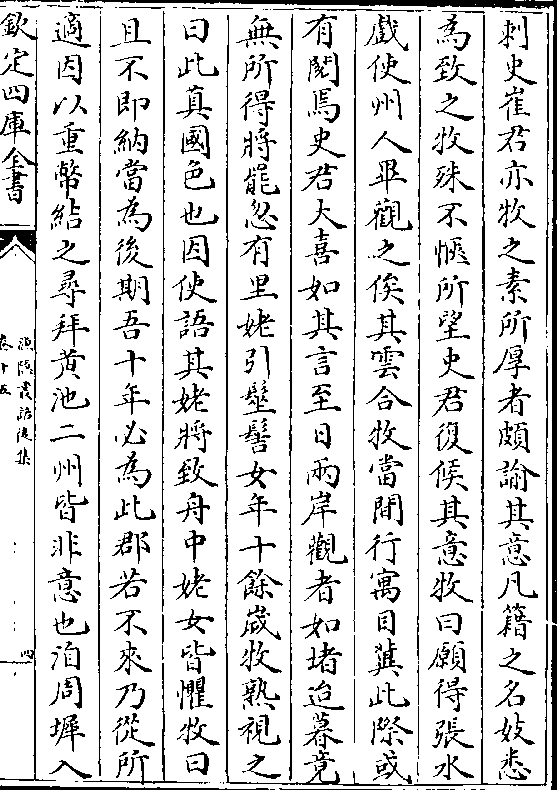 刺史崔君亦牧之素所厚者頗諭其意凡籍之名妓悉
為致之牧殊不愜所望史君復候其意牧曰願得張水
戲使州人畢觀之俟其雲合牧當閒行寓目冀此際或
有閱焉史君大喜如其言至日兩岸觀者如堵迨暮竟
無所得將罷忽有里姥引髽髻女年十餘歲牧熟視之
曰此真國色也因使語其姥將致舟中姥女皆懼牧曰
且不即納當為後期吾十年必為此郡若不來乃從所
適因以重幣結之尋拜黄池二州皆非意也洎周墀入
欽定四庫全書
漁隱叢話後集
卷十五
四